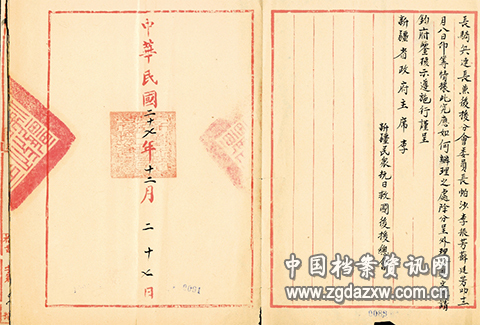 長騎兵連長兼後援分會委員長帕沙李振芳蘇廷芳叩
月八日印等情據此究應如何辦理之處除分呈外理
鈞府鑒核示遵施行謹呈
新疆省政府主席李
新疆民衆抗日救國後援總
中華民國二十七年十二月二十七日
中国档案资讯网
www.zgdazxw.com.cn